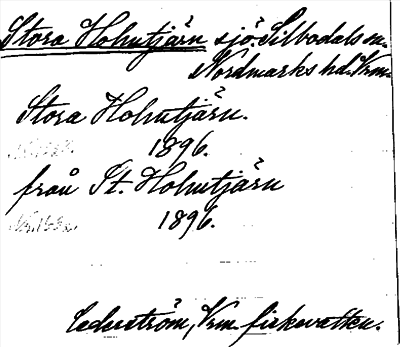 Stora Hohutjärn sjö. Silbodals sn.
Nordmarks hd. Vrm.
Stora Hohutjärn.
1896.
från St. Hohutjärn
1896.
Cederström, Vrm fiskevatten.